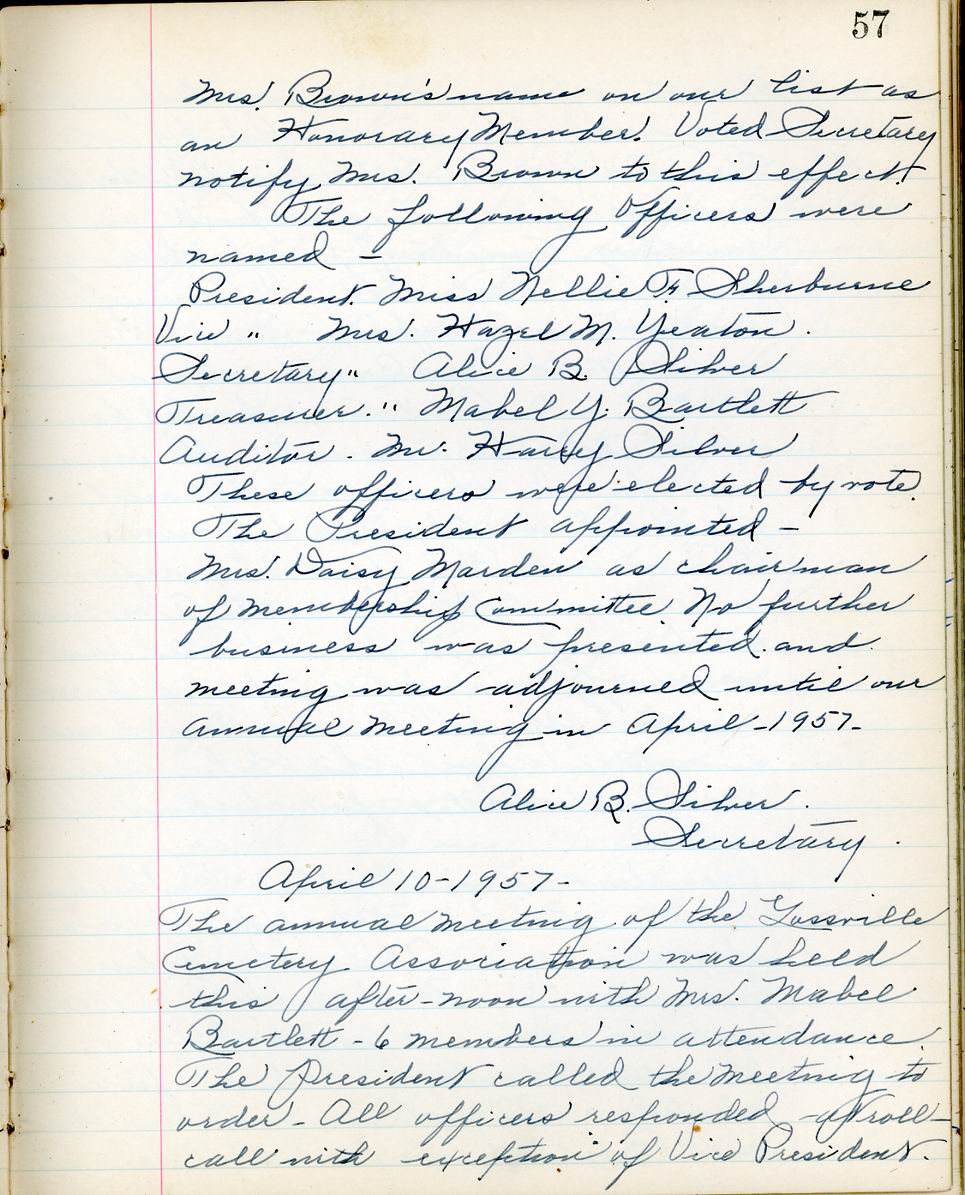 57
Mrs. Brown's name on our list as
an Honorary Member. Voted Secretary
notify Mrs. Brown to this effect.
The following Officers were
named -
President. Miss Nellie F. Sherburne
Vice " Mrs. Hazel M. Yeaton.
Secretary " Alice B. Silver
Treasurer. " Mabel Y. Bartlett
Auditor. Mr. Harry Silver
These officers were elected by vote.
The President appointed -
Mrs. Daisy Marden as chairman
of membership Committee No further
business was presented and
meeting was adjourned until our
annual meeting in April - 1957 -
Alice B. Silver.
Secretary.
April 10 - 1957 -
The annual meeting of the Gossville
Cemetery Association was held
this after-noon with Mrs. Mabel
Bartlett - 6 members in attendance.
The President called the meeting to
order - All officers responded at roll-
call with exception of Vice President.